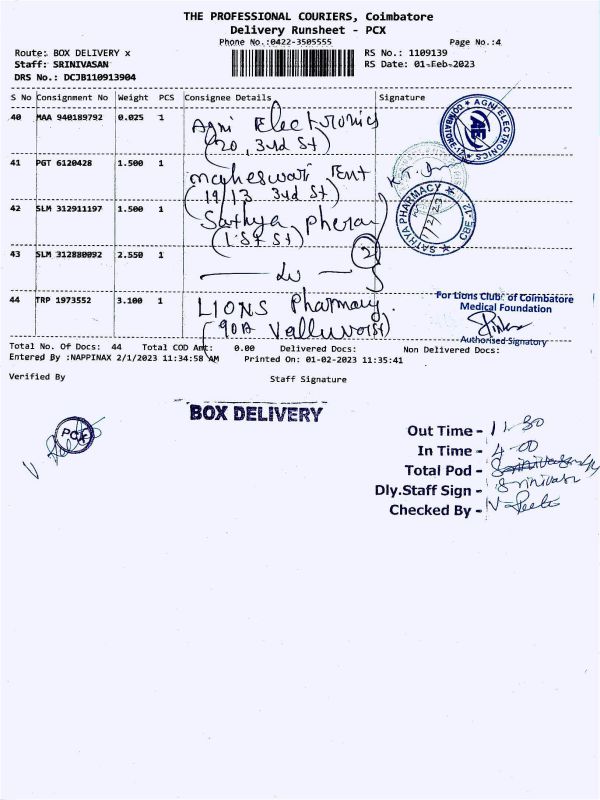 THE PROFESSIONAL COURIERS, Coimbatore
Delivery Runsheet - PCX
Phone No.:0422-3505555 Page No.:4
Route: BOX DELIVERY x RS No.: 1109139
Staff: SRINIVASAN RS Date: 01-Feb-2023
DRS No.: DCJB110913904
S No Consignment No Weight PCS Consignee Details Signature
40 MAA 940189792 0.025 1 Agni Electronics
(20, 3rd St)
AGNI ELECTRONICS
41 PGT 6120428 1.500 1 maheswari Ent
(19/13 3rd St)
42 SLM 312911197 1.500 1 Sathya pharma
(1st St)
SATHYA PHARMACY CBE-12
1/2/23
43 SLM 312880092 2.550 1
2
44 TRP 1973552 3.100 1 LIONS Pharmacy.
For Lions Club of Coimbatore
Medical Foundation
Authorised Signatory
Total No. Of Docs: 44 Total COD Amt: 0.00 Delivered Docs: Non Delivered Docs:
Entered By :NAPPINAX 2/1/2023 11:34:58 AM Printed On: 01-02-2023 11:35:41
Verified By Staff Signature
BOX DELIVERY
PCX
Out Time - 11-30
In Time - 4-00
Total Pod -
Dly.Staff Sign - Srinivasan
Checked By -